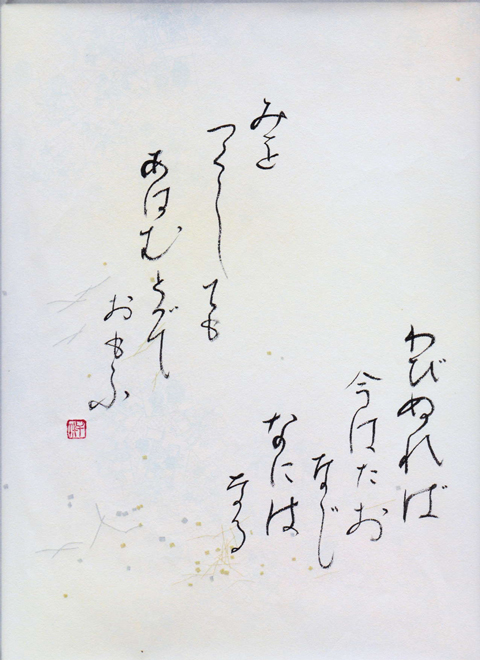 わびぬれば
今はたお
なじ
なには
なる
みを
つくしても
あはむとぞ
おもふ